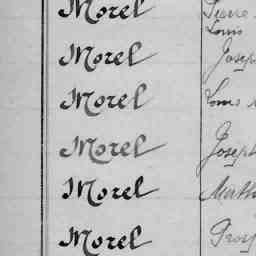 Morel Pierre
Louis
Morel Joseph
Morel Louis
Morel Joseph
Morel Math
Morel Prosp